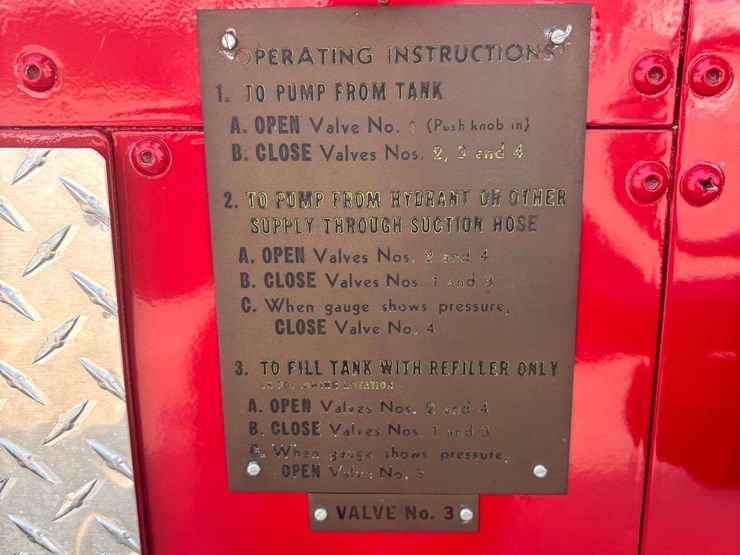 OPERATING INSTRUCTIONS
1. TO PUMP FROM TANK
A. OPEN Valve No. 1 (Push knob in)
B. CLOSE Valves Nos. 2, 3 and 4
2. TO PUMP FROM HYDRANT OR OTHER
SUPPLY THROUGH SUCTION HOSE
A. OPEN Valves Nos. 2 and 4
B. CLOSE Valves Nos. 1 and 3
C. When gauge shows pressure,
CLOSE Valve No. 4
3. TO FILL TANK WITH REFILLER ONLY
A. OPEN Valves Nos. 2 and 4
B. CLOSE Valves Nos. 1 and 3
C. When gauge shows pressure,
OPEN Valve No. 3
VALVE No. 3